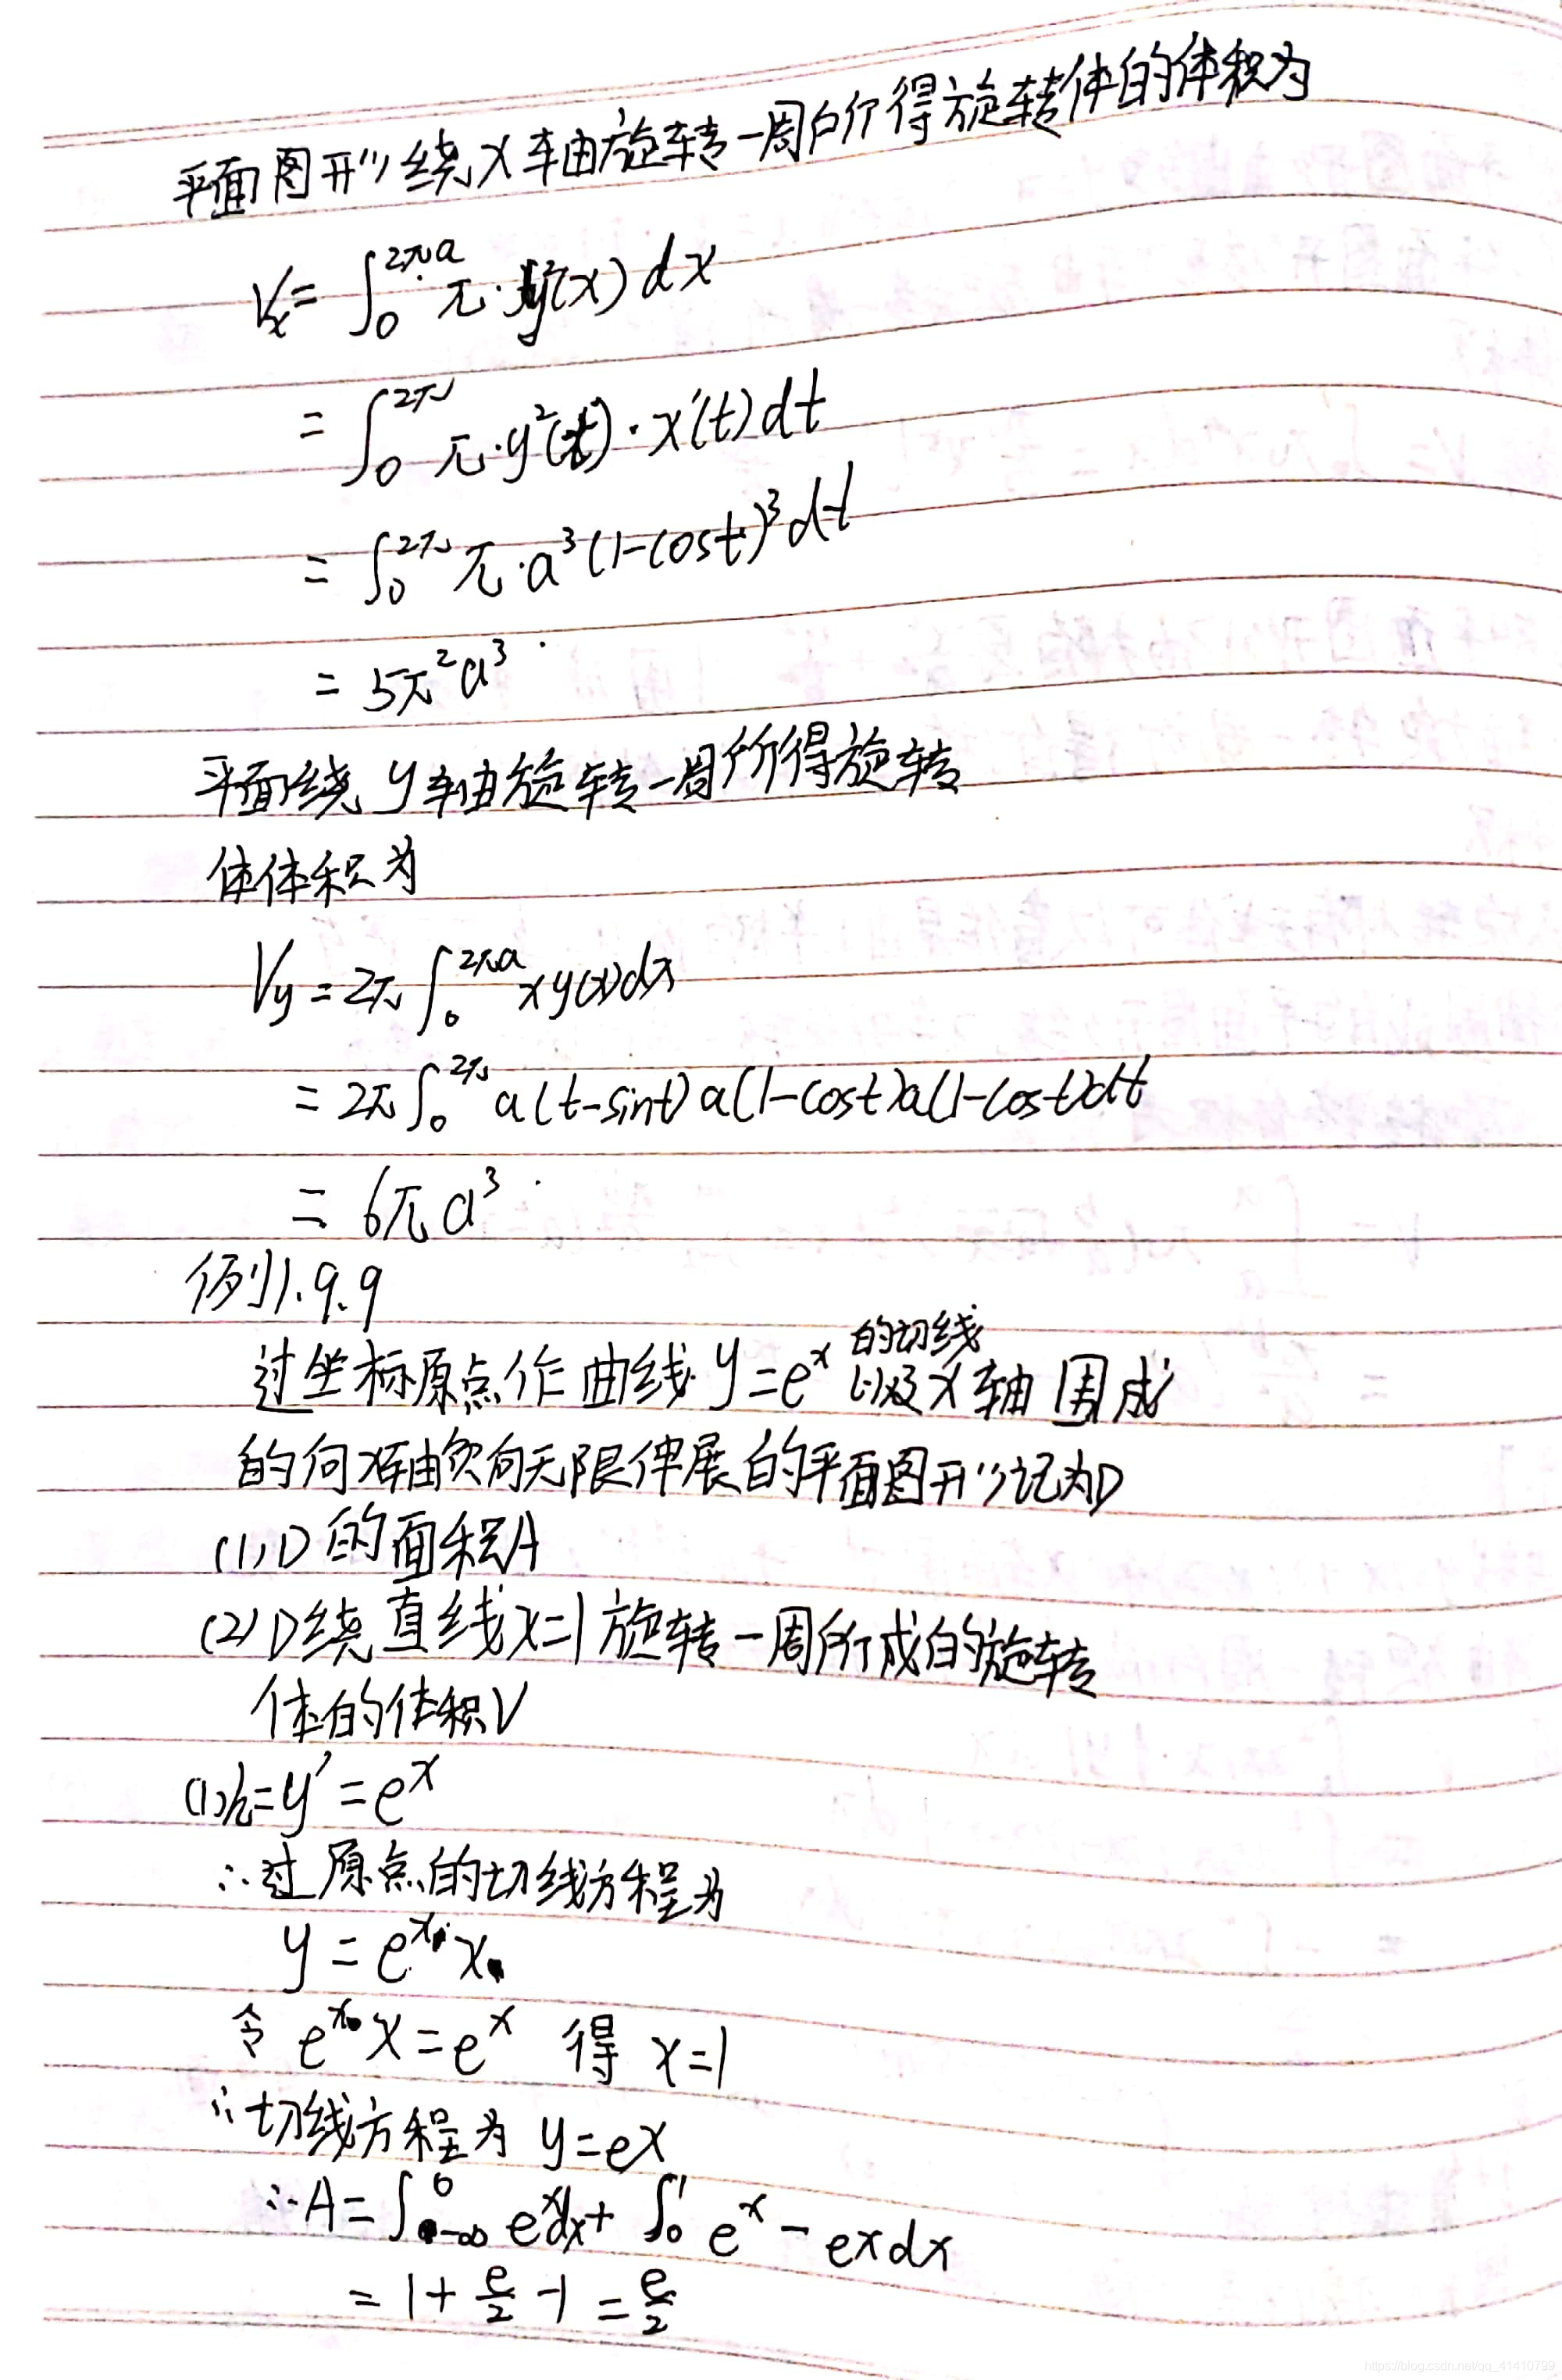 平面图形绕x轴旋转一周所得旋转体的体积为
Vx = ∫₀^{2πa} π·y²(x) dx
= ∫₀^{2π} π·y²(t)·x'(t) dt
= ∫₀^{2π} π·a³(1-cost)³dt
= 5π²a³
平面绕y轴旋转一周所得旋转
体体积为
Vy = 2π ∫₀^{2πa} x y(x) dx
= 2π ∫₀^{2π} a(t-sint) a(1-cost) a(1-cost) dt
= 6πa³
例1.9.9
过坐标原点作曲线 y=e^x 的切线以及x轴围成
的向x轴负向无限伸展的平面图形记为D
(1)D的面积A
(2)D绕直线x=1旋转一周所成的旋转
体的体积V
(1)k=y'=e^x
∴过原点的切线方程为
y=e^{x₀}x
令 e^{x₀}x=e^x 得 x=1
∴切线方程为 y=ex
∴A=∫_{-∞}^0 e^x dx + ∫₀^1 e^x - ex dx
= 1 + e/2 - 1 = e/2
https://blog.csdn.net/qq_41410799